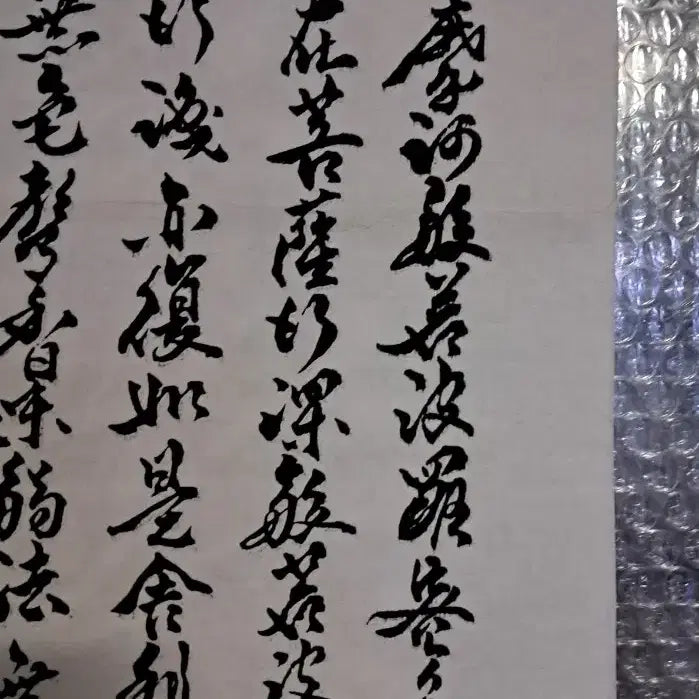 摩訶般若波羅蜜多
在菩薩行深般若波
行識亦復如是舍利
無色聲香味觸法無